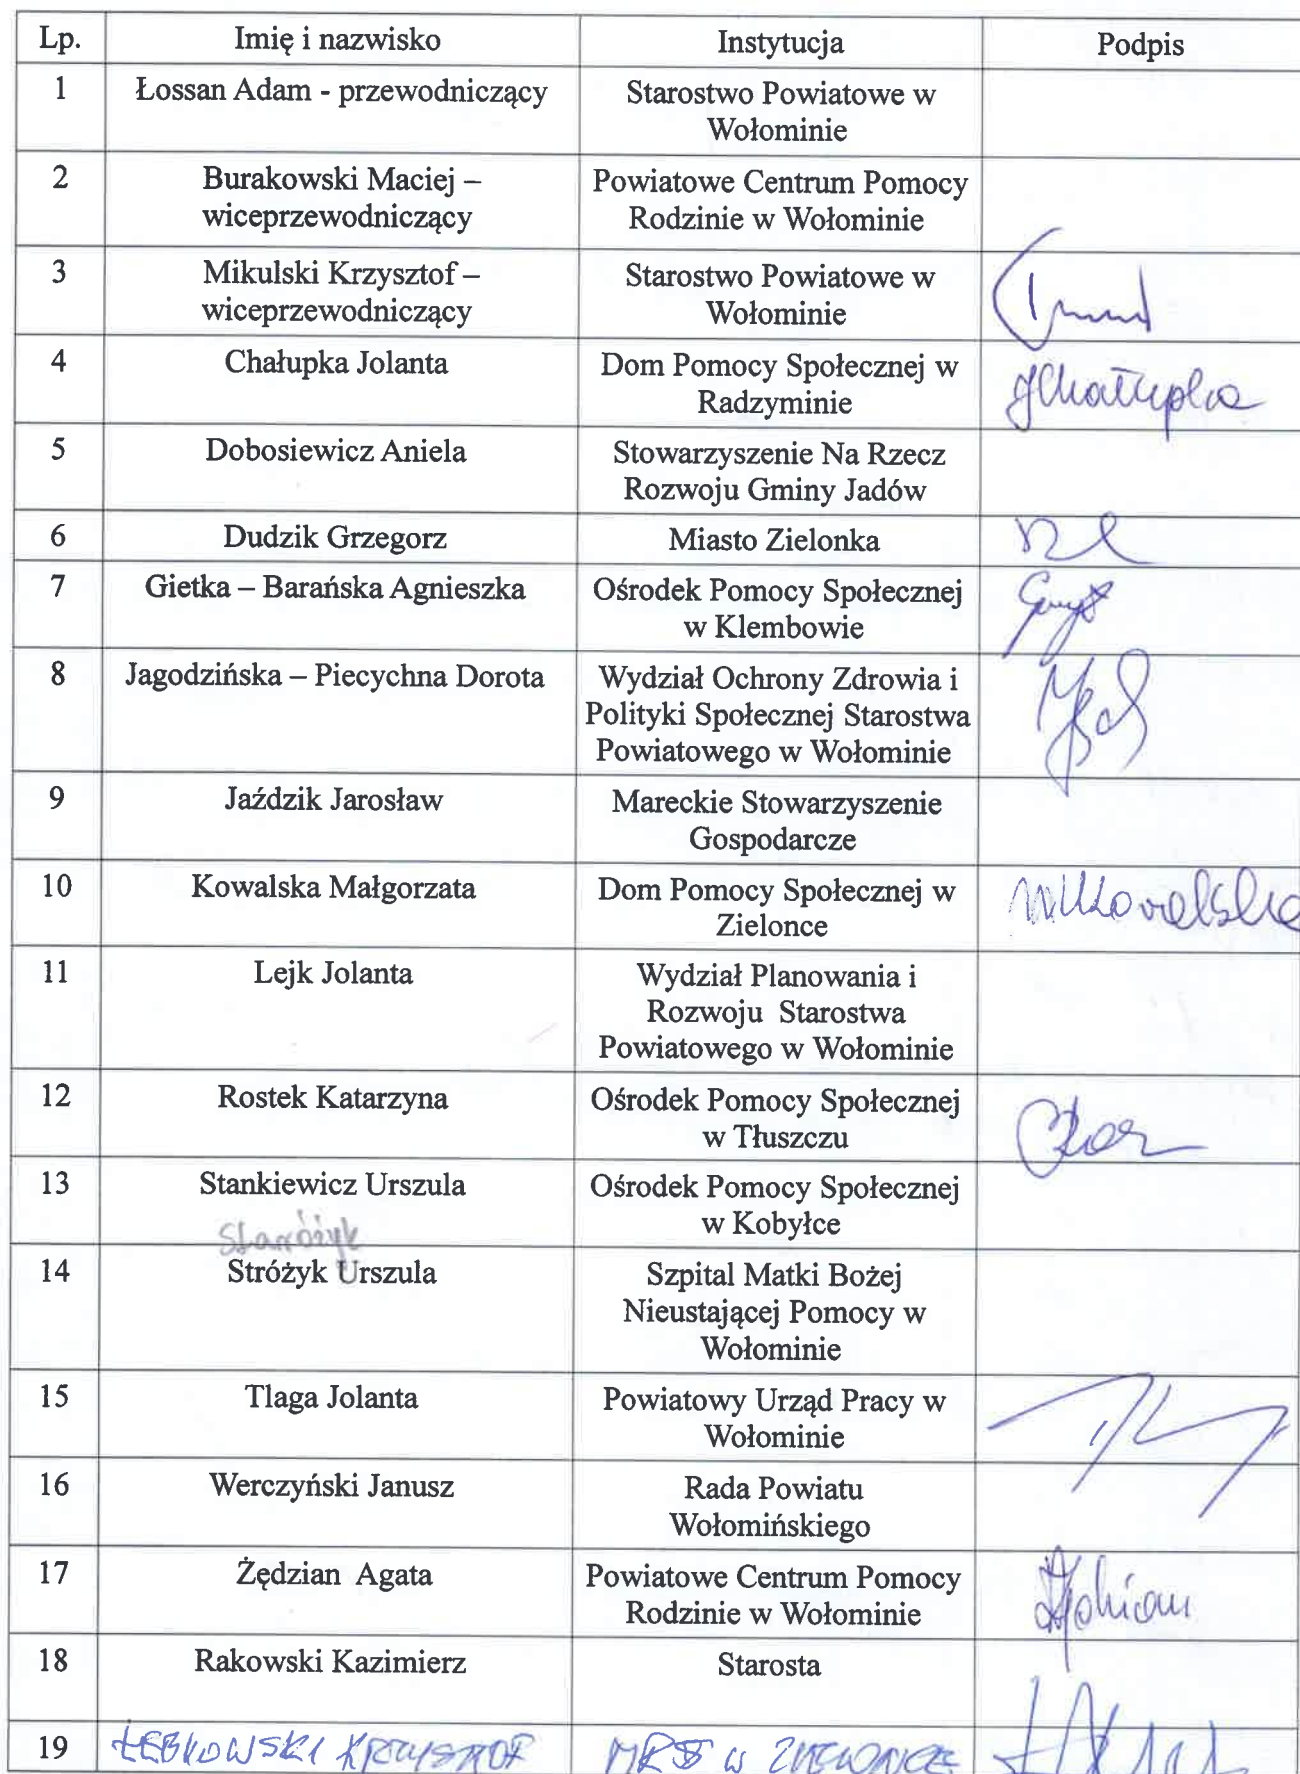 Lp. Imię i nazwisko Instytucja Podpis
1 Łossan Adam - przewodniczący Starostwo Powiatowe w
Wołominie
2 Burakowski Maciej – Powiatowe Centrum Pomocy
wiceprzewodniczący Rodzinie w Wołominie
3 Mikulski Krzysztof – Starostwo Powiatowe w
wiceprzewodniczący Wołominie
4 Chałupka Jolanta Dom Pomocy Społecznej w JChałupka
Radzyminie
5 Dobosiewicz Aniela Stowarzyszenie Na Rzecz
Rozwoju Gminy Jadów
6 Dudzik Grzegorz Miasto Zielonka
7 Gietka – Barańska Agnieszka Ośrodek Pomocy Społecznej
w Klembowie
8 Jagodzińska – Piecychna Dorota Wydział Ochrony Zdrowia i
Polityki Społecznej Starostwa
Powiatowego w Wołominie
9 Jaździk Jarosław Mareckie Stowarzyszenie
Gospodarcze
10 Kowalska Małgorzata Dom Pomocy Społecznej w MKowalska
Zielonce
11 Lejk Jolanta Wydział Planowania i
Rozwoju Starostwa
Powiatowego w Wołominie
12 Rostek Katarzyna Ośrodek Pomocy Społecznej
w Tłuszczu
13 Stankiewicz Urszula Ośrodek Pomocy Społecznej
w Kobyłce
Starróżyk
14 Stróżyk Urszula Szpital Matki Bożej
Nieustającej Pomocy w
Wołominie
15 Tlaga Jolanta Powiatowy Urząd Pracy w
Wołominie
16 Werczyński Janusz Rada Powiatu
Wołomińskiego
17 Żędzian Agata Powiatowe Centrum Pomocy
Rodzinie w Wołominie
18 Rakowski Kazimierz Starosta
19 ŁEBKOWSKI KRZYSZTOF W ZIELONCE